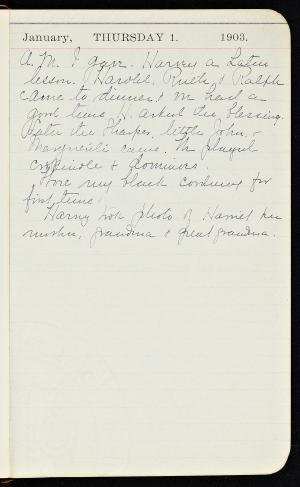 January, THURSDAY 1. 1903.
A.M. I gave Harvey a Latin
lesson. Harold, Ruth, & Ralph
came to dinner & we had a
good time. H. asked the blessing.
Later the Thorpes, little John, &
Marguerite came. We played
crokinole & dominoes.
Wore my black corduroy for
first time.
Harvey took photo of Harriet her
mother, grandma & great grandma.